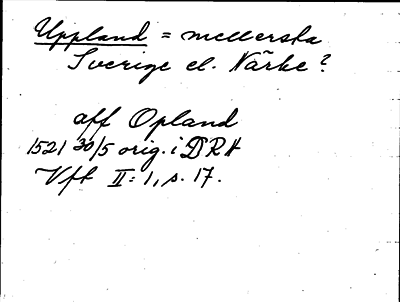 Uppland = mellersta
Sverige el. Närke?
aff Opland
1521 30/5 orig. i DRA
Vft II:1, s. 17.